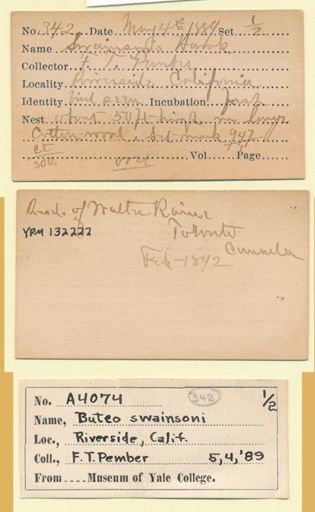 No. 342 Date May 14th 1889 Set 1/2
Name Swainson's Hawk
Collector F. T. Pember
Locality Riverside California
Identity bird seen Incubation fresh
Nest about 50 ft high in large
Cotton-wood, Set mark
Vol. Page
of Walter Raine
YPM 132222 Toronto
Canada
Feb - 1892
No. A4074 342 1/2
Name, Buteo swainsoni
Loc., Riverside, Calif.
Coll., F.T. Pember 5,4,'89
From Museum of Yale College.